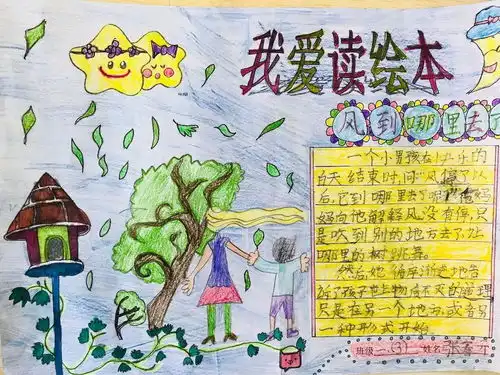 我爱读绘本
风到哪里去了
一个小男孩在
白天结束时问"风停了以
后,它到哪里去了呢"
妈向他解释风没有停,只
是吹到别的地方去了,让
那里的树跳舞。
然后,她循序渐进地告
诉了孩子世上物
只是在另一个地方,或者另
一种形式开始
班级一(3) 姓名